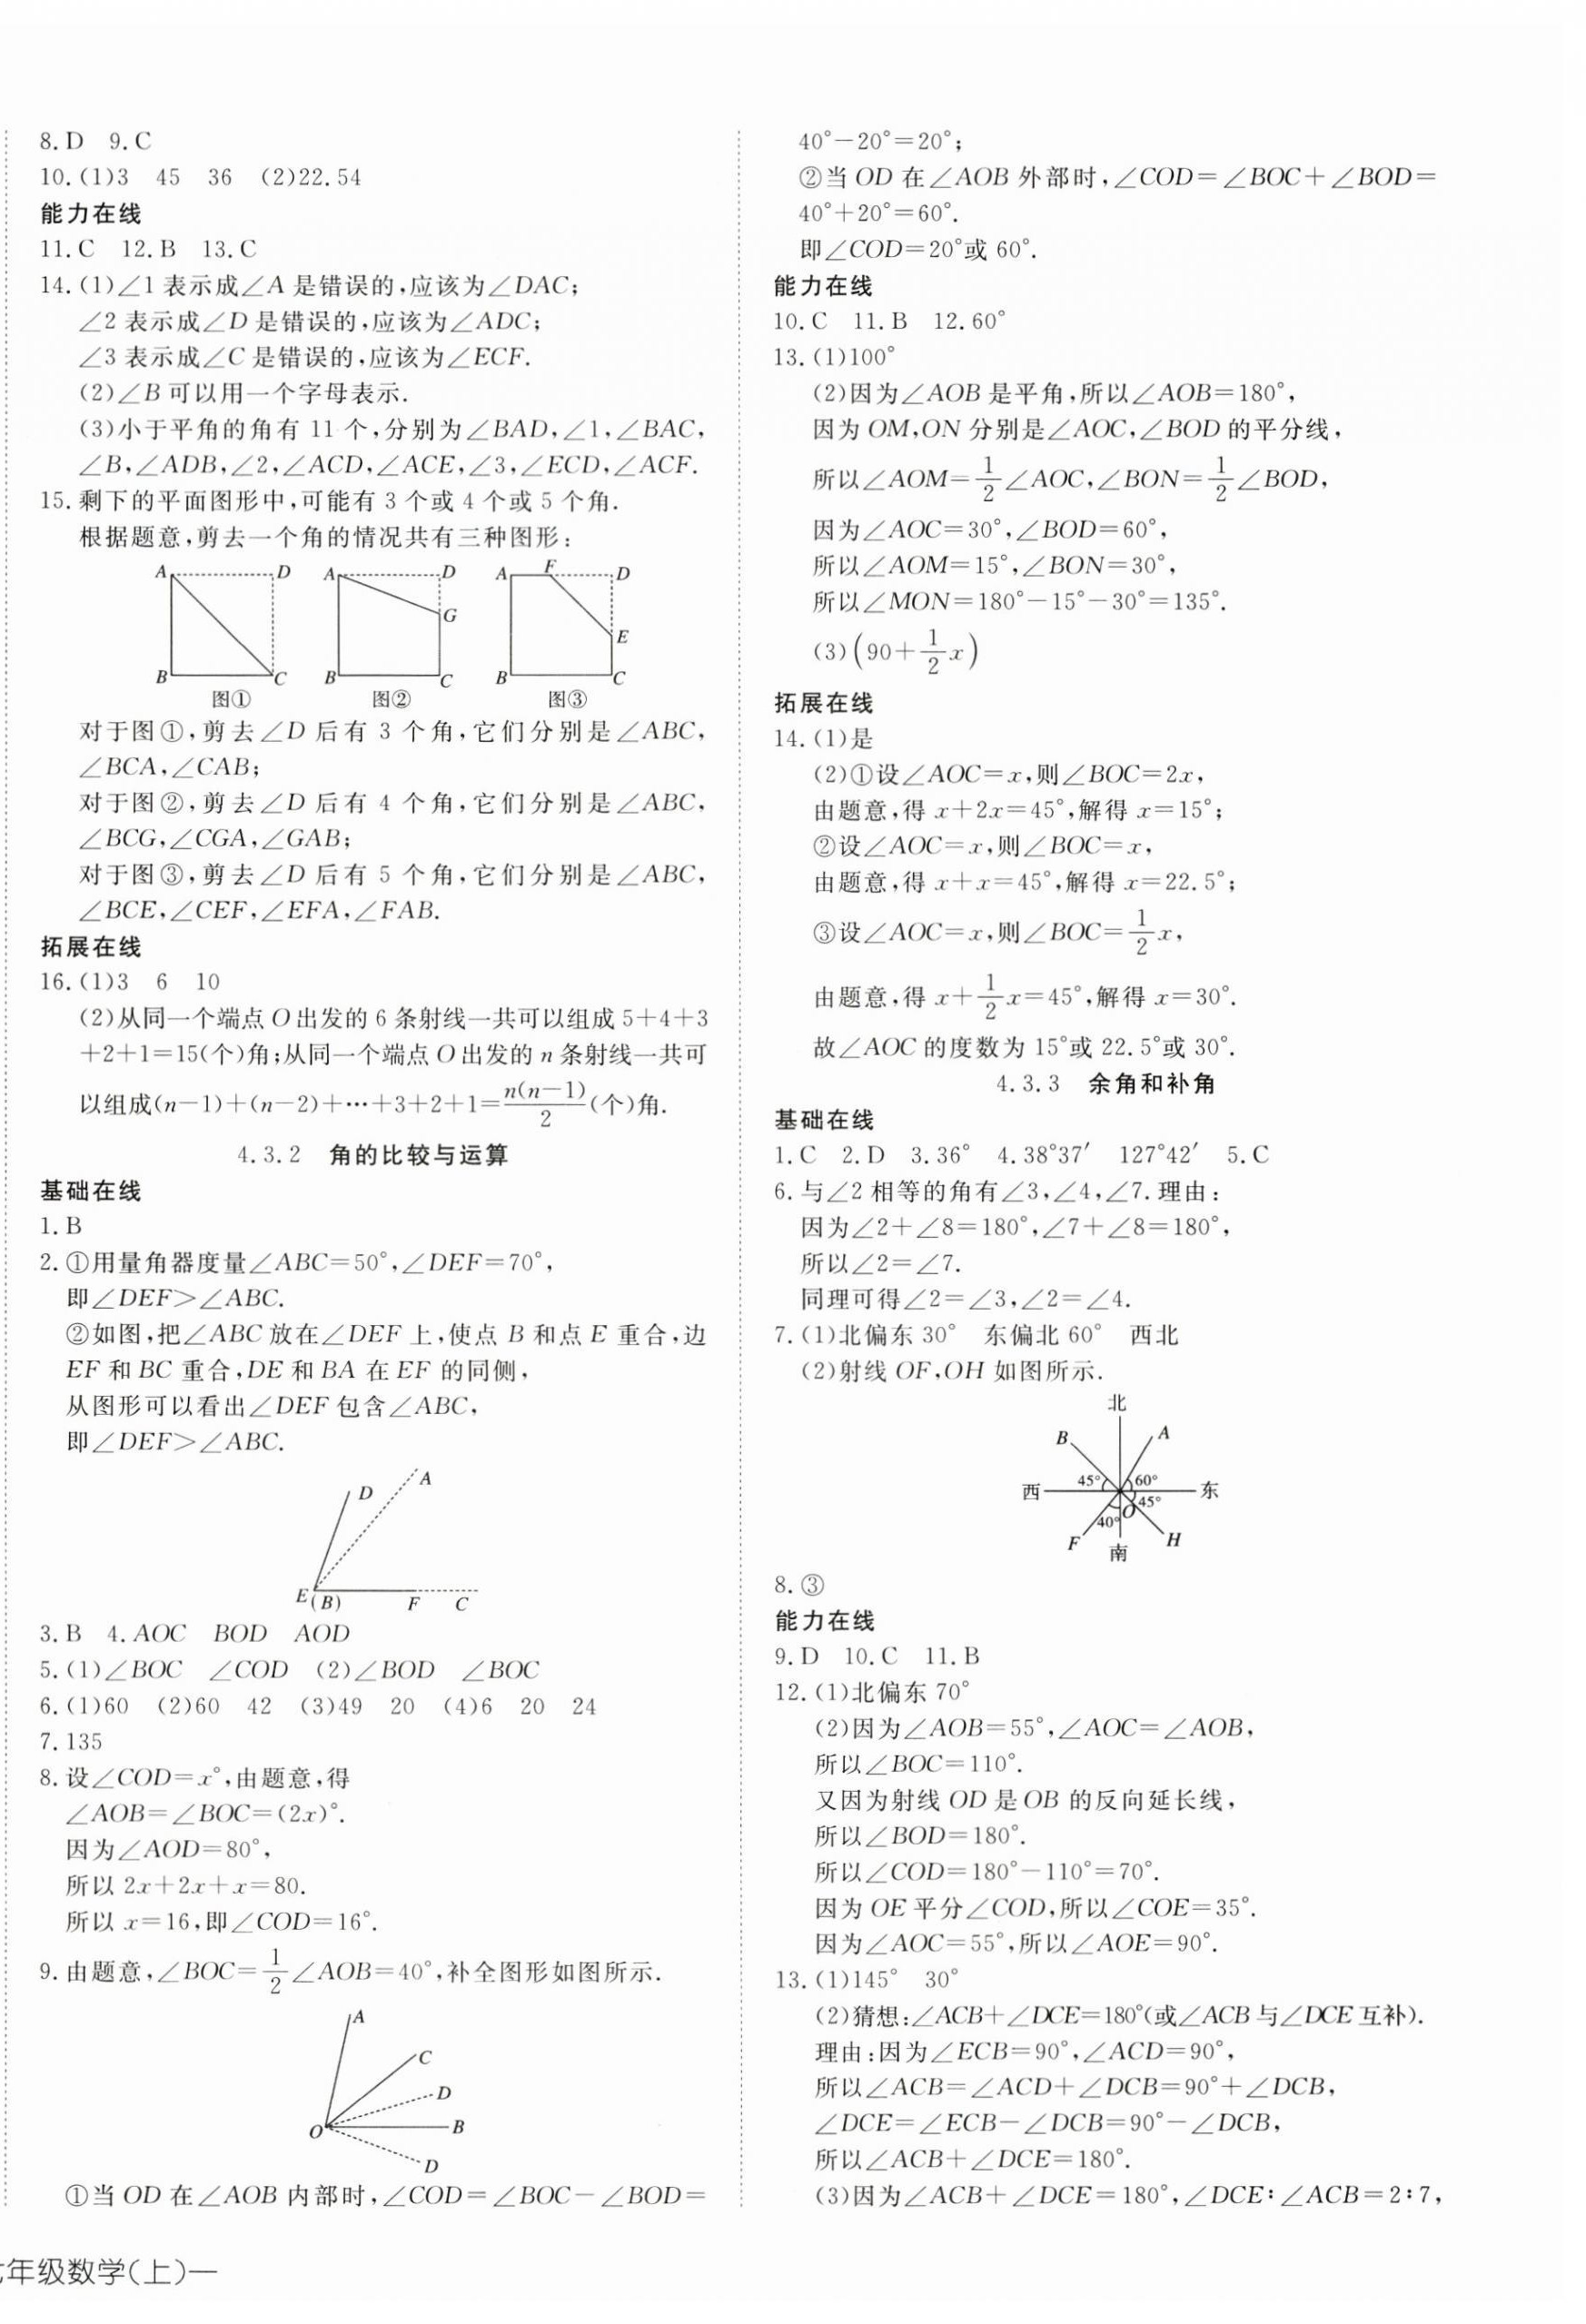 8. D　9. C
10. (1)3　45　36　(2)22.54
能力在线
11. C　12. B　13. C
14. (1)∠1 表示成∠A 是错误的,应该为∠DAC;
∠2 表示成∠D 是错误的,应该为∠ADC;
∠3 表示成∠C 是错误的,应该为∠ECF.
(2)∠B 可以用一个字母表示.
(3)小于平角的角有 11 个,分别为∠BAD,∠1,∠BAC,
∠B,∠ADB,∠2,∠ACD,∠ACE,∠3,∠ECD,∠ACF.
15. 剩下的平面图形中,可能有 3 个或 4 个或 5 个角.
根据题意,剪去一个角的情况共有三种图形:
A D A D A F D
G E
B C B C B C
图①　图②　图③
对于图①,剪去∠D 后有 3 个角,它们分别是∠ABC,
∠BCA,∠CAB;
对于图②,剪去∠D 后有 4 个角,它们分别是∠ABC,
∠BCG,∠CGA,∠GAB;
对于图③,剪去∠D 后有 5 个角,它们分别是∠ABC,
∠BCE,∠CEF,∠EFA,∠FAB.
拓展在线
16. (1)3　6　10
(2)从同一个端点 O 出发的 6 条射线一共可以组成 5+4+3
+2+1=15(个)角;从同一个端点 O 出发的 n 条射线一共可
以组成(n−1)+(n−2)+…+3+2+1=n(n−1)/2(个)角.
4.3.2　角的比较与运算
基础在线
1. B
2. ①用量角器度量∠ABC=50°,∠DEF=70°,
即∠DEF>∠ABC.
②如图,把∠ABC 放在∠DEF 上,使点 B 和点 E 重合,边
EF 和 BC 重合,DE 和 BA 在 EF 的同侧,
从图形可以看出∠DEF 包含∠ABC,
即∠DEF>∠ABC.
D A
E(B) F C
3. B　4. AOC　BOD　AOD
5. (1)∠BOC　∠COD　(2)∠BOD　∠BOC
6. (1)60　(2)60　42　(3)49　20　(4)6　20　24
7. 135
8. 设∠COD=x°,由题意,得
∠AOB=∠BOC=(2x)°.
因为∠AOD=80°,
所以 2x+2x+x=80.
所以 x=16,即∠COD=16°.
9. 由题意,∠BOC=1/2∠AOB=40°,补全图形如图所示.
A
C
D
O B
D
①当 OD 在∠AOB 内部时,∠COD=∠BOC−∠BOD=
年级数学(上)—
40°−20°=20°;
②当 OD 在∠AOB 外部时,∠COD=∠BOC+∠BOD=
40°+20°=60°.
即∠COD=20°或 60°.
能力在线
10. C　11. B　12. 60°
13. (1)100°
(2)因为∠AOB 是平角,所以∠AOB=180°,
因为 OM,ON 分别是∠AOC,∠BOD 的平分线,
所以∠AOM=1/2∠AOC,∠BON=1/2∠BOD,
因为∠AOC=30°,∠BOD=60°,
所以∠AOM=15°,∠BON=30°,
所以∠MON=180°−15°−30°=135°.
(3)(90+1/2x)
拓展在线
14. (1)是
(2)①设∠AOC=x,则∠BOC=2x,
由题意,得 x+2x=45°,解得 x=15°;
②设∠AOC=x,则∠BOC=x,
由题意,得 x+x=45°,解得 x=22.5°;
③设∠AOC=x,则∠BOC=1/2x,
由题意,得 x+1/2x=45°,解得 x=30°.
故∠AOC 的度数为 15°或 22.5°或 30°.
4.3.3　余角和补角
基础在线
1. C　2. D　3. 36°　4. 38°37′　127°42′　5. C
6. 与∠2 相等的角有∠3,∠4,∠7. 理由:
因为∠2+∠8=180°,∠7+∠8=180°,
所以∠2=∠7.
同理可得∠2=∠3,∠2=∠4.
7. (1)北偏东 30°　东偏北 60°　西北
(2)射线 OF,OH 如图所示.
北
B A
45° 60°
西 东
45°
40° O
F H
南
8. ③
能力在线
9. D　10. C　11. B
12. (1)北偏东 70°
(2)因为∠AOB=55°,∠AOC=∠AOB,
所以∠BOC=110°.
又因为射线 OD 是 OB 的反向延长线,
所以∠BOD=180°.
所以∠COD=180°−110°=70°.
因为 OE 平分∠COD,所以∠COE=35°.
因为∠AOC=55°,所以∠AOE=90°.
13. (1)145°　30°
(2)猜想:∠ACB+∠DCE=180°(或∠ACB 与∠DCE 互补).
理由:因为∠ECB=90°,∠ACD=90°,
所以∠ACB=∠ACD+∠DCB=90°+∠DCB,
∠DCE=∠ECB−∠DCB=90°−∠DCB,
所以∠ACB+∠DCE=180°.
(3)因为∠ACB+∠DCE=180°,∠DCE∶∠ACB=2∶7,